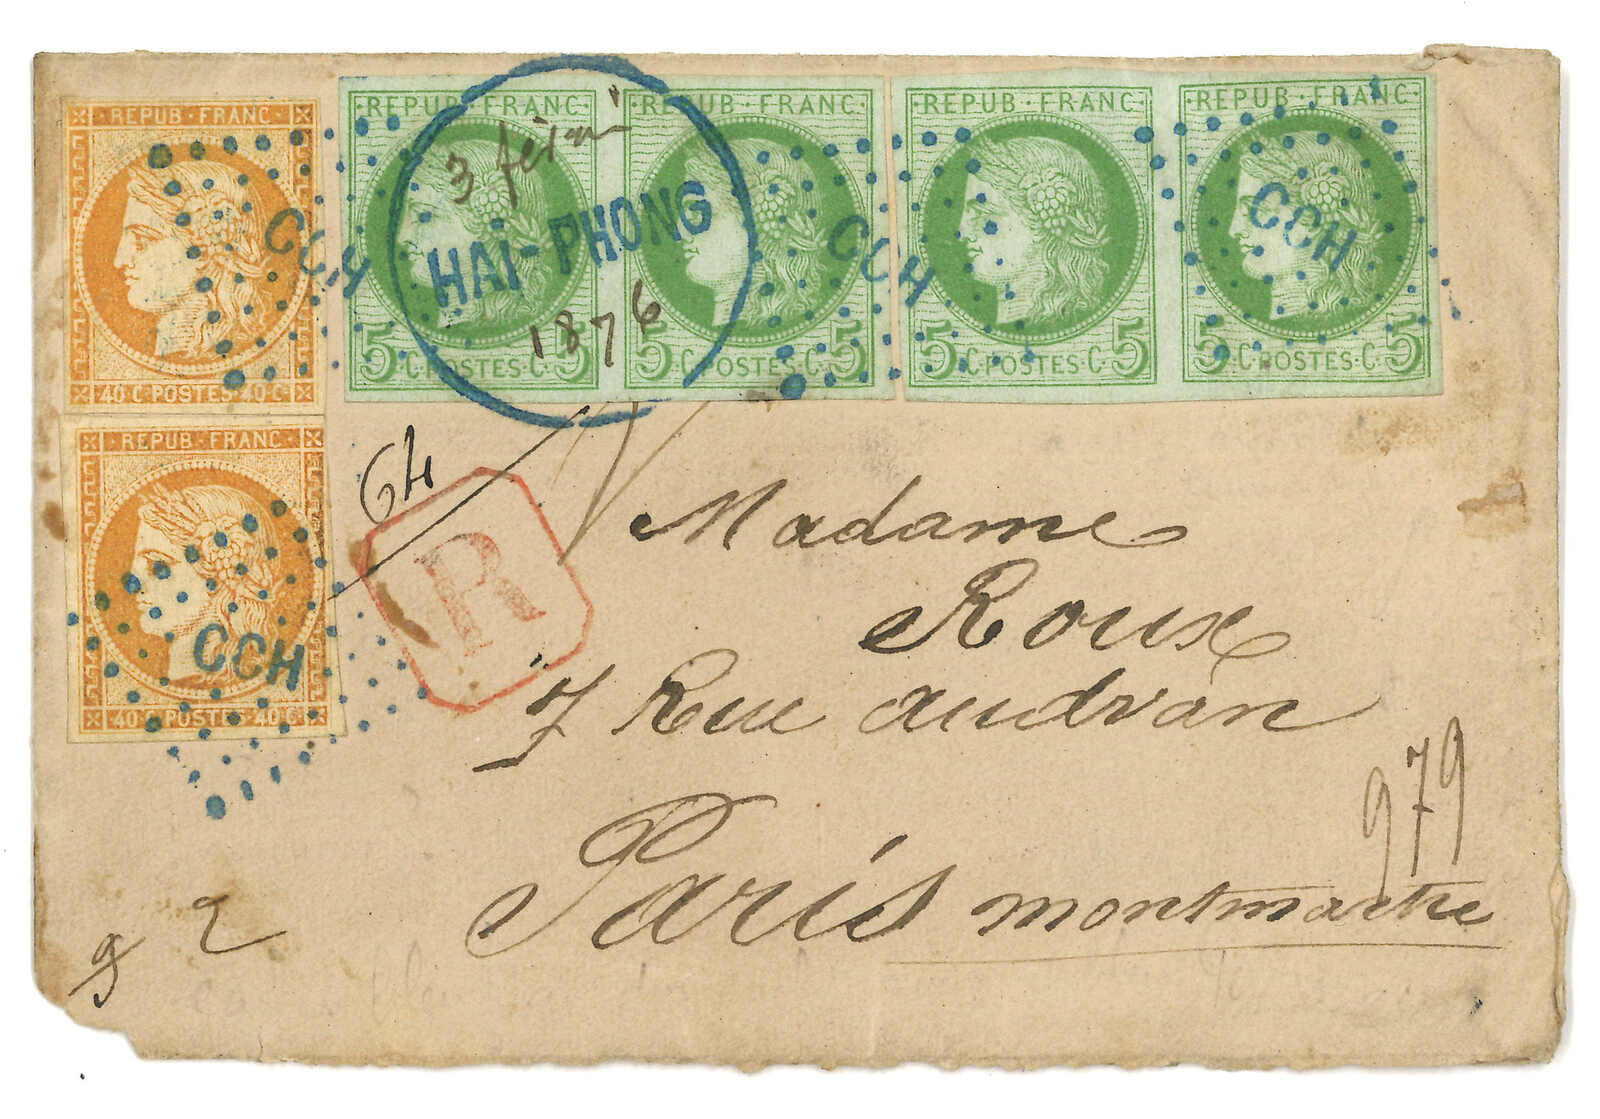 REPUB · FRANC
40·C·POSTES·40·C
REPUB · FRANC
40·C·POSTES·40·C
REPUB · FRANC
5·C·POSTES·C·5
REPUB · FRANC
5·C·POSTES·C·5
REPUB · FRANC
5·C·POSTES·C·5
REPUB · FRANC
5·C·POSTES·C·5
CCH
CCH
CCH
CCH
3
HAI-PHONG
1876
64
R
Madame
Roux
7 Rue audran
Paris montmartre
979
2